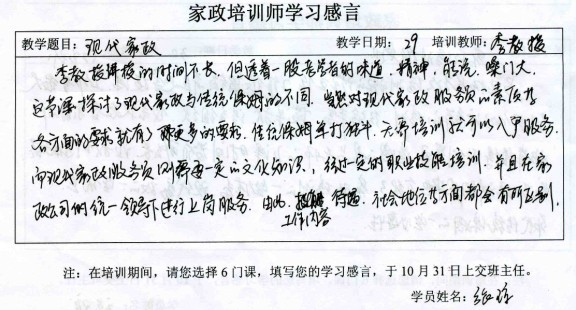 家政培训师学习感言
教学题目：现代家政 教学日期：29 培训教师：李教授
李教授讲授的时间不长，但透着一股老学者的味道，精神，能说，嗓门大，
这节课探讨了现代家政与传统保姆的不同，当然对现代家政服务员的素质及
各方面的要求就有了更多的要求。往往保姆单打独斗，无需培训就可以入户服务，
而现代家政服务员则需要一定的文化知识，经过一定的职业技能培训，并且在家
政公司的统一领导下进行上岗服务。由此，待遇，社会地位等方面都会有所区别。
工作内容
注：在培训期间，请您选择6门课，填写您的学习感言，于10月31日上交班主任。
学员姓名：